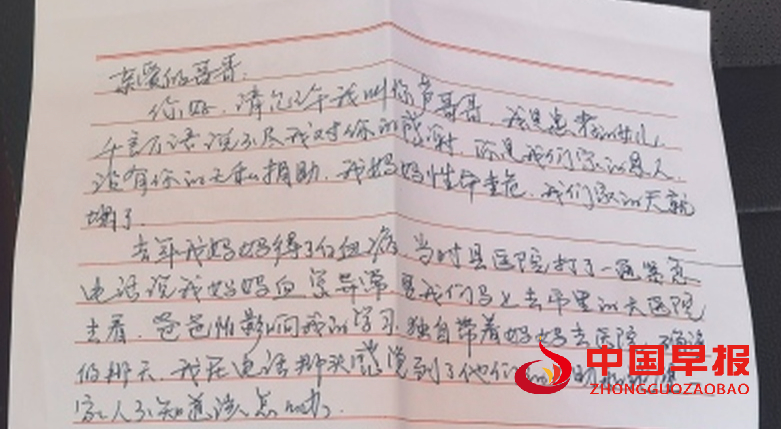 亲爱的哥哥:
你好,请允许我叫你声哥哥,我是患者的女儿,
千言万语说不尽我对你的感谢,你是我们家的恩人,
没有你的无私捐助,我妈妈性命垂危,我们家的天就
塌了。
去年我妈妈得了白血病,当时县医院打了一通紧急
电话说我妈妈血常异常,要我们马上去市里的大医院
去看,爸爸怕影响我的学习,独自带着妈妈去医院,确诊
的那天,我在电话那头感觉到了他们
家人不知道该怎么办。
中国早报
ZHONGGUOZAOBAO